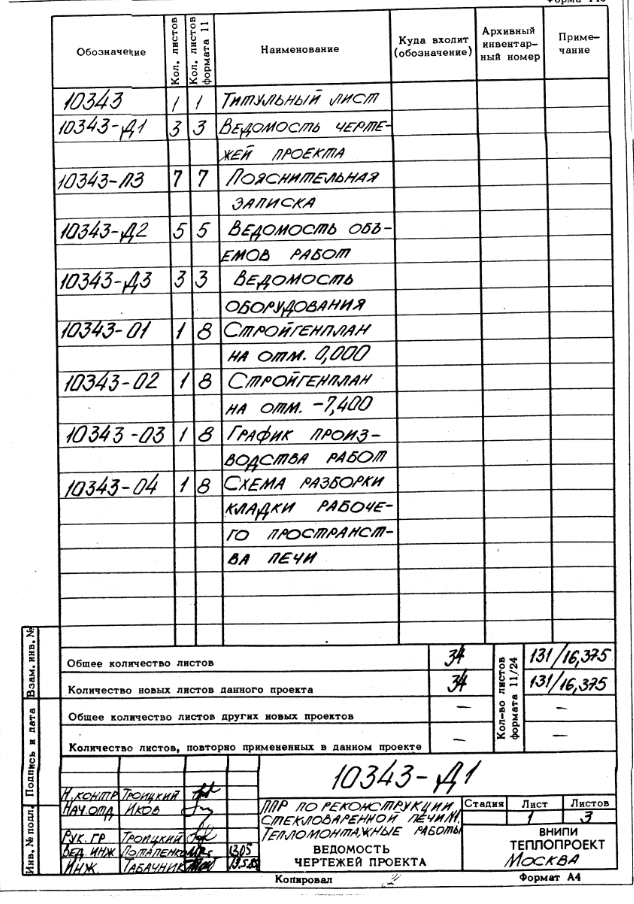 Обозначение Кол. листов Кол. листов формата 11 Наименование Куда входит (обозначение) Архивный инвентарный номер Примечание
10343 1 1 Титульный лист
10343-Д1 3 3 Ведомость черте-
жей проекта
10343-ПЗ 7 7 Пояснительная
записка
10343-Д2 5 5 Ведомость объ-
емов работ
10343-Д3 3 3 Ведомость
оборудования
10343-01 1 8 Стройгенплан
на отм. 0,000
10343-02 1 8 Стройгенплан
на отм. -7,400
10343-03 1 8 График произ-
водства работ
10343-04 1 8 Схема разборки
кладки рабоче-
го пространст-
ва печи
Общее количество листов 34 131/16,375
Количество новых листов данного проекта 34 131/16,375
Общее количество листов других новых проектов — —
Количество листов, повторно примененных в данном проекте — —
Кол-во листов формата 11/24
Взам. инв. №
Подпись и дата
Инв. № подл.
10343-Д1
Н.контр Троицкий
Нач.отд Иков
Рук. гр Троицкий
Вед. инж Потапенко 13.05
Инж. Табачник
ППР по реконструкции
стекловаренной печи
Тепломонтажные работы
ВЕДОМОСТЬ
ЧЕРТЕЖЕЙ ПРОЕКТА
Стадия Лист Листов
1 3
ВНИПИ
ТЕПЛОПРОЕКТ
Москва
Копировал Формат А4